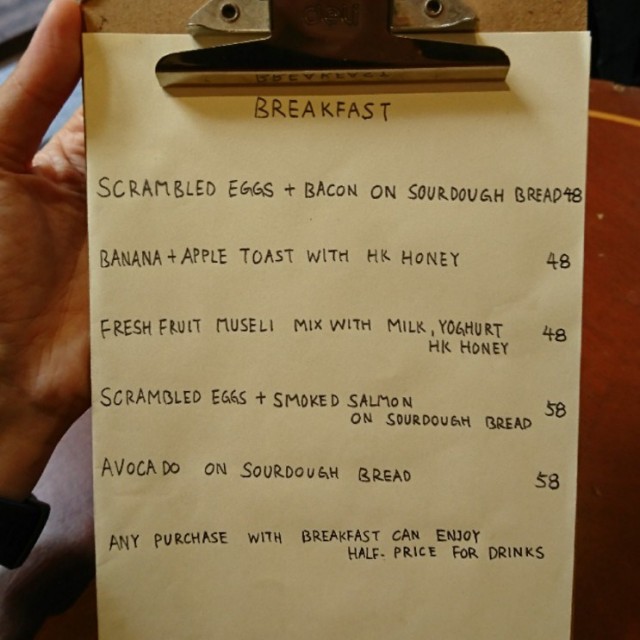 BREAKFAST
SCRAMBLED EGGS + BACON ON SOURDOUGH BREAD 48
BANANA + APPLE TOAST WITH HK HONEY 48
FRESH FRUIT MUSELI MIX WITH MILK, YOGHURT 48
HK HONEY
SCRAMBLED EGGS + SMOKED SALMON 58
ON SOURDOUGH BREAD
AVOCADO ON SOURDOUGH BREAD 58
ANY PURCHASE WITH BREAKFAST CAN ENJOY
HALF-PRICE FOR DRINKS